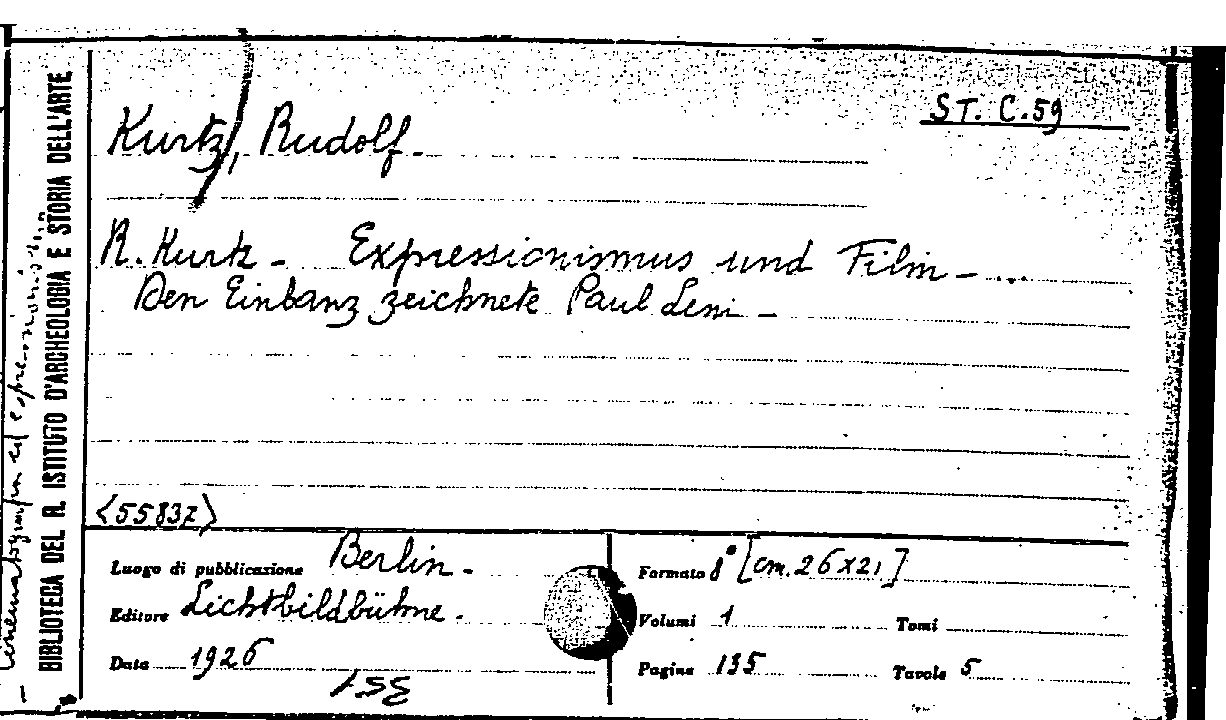 ST. C.59
Kurtz, Rudolf.
R. Kurtz - Expressionismus und Film - ...
Den Einbanz zeichnete Paul Leni -
<55837>
Luogo di pubblicazione Berlin.
Editore Lichtbildbühne.
Data 1926
Formato 8° [cm. 26x21]
Volumi 1 Tomi
Pagine 135 Tavole 5
BIBLIOTECA DEL R. ISTITUTO D'ARCHEOLOGIA E STORIA DELL'ARTE
- Cinematografia ed espressionismo